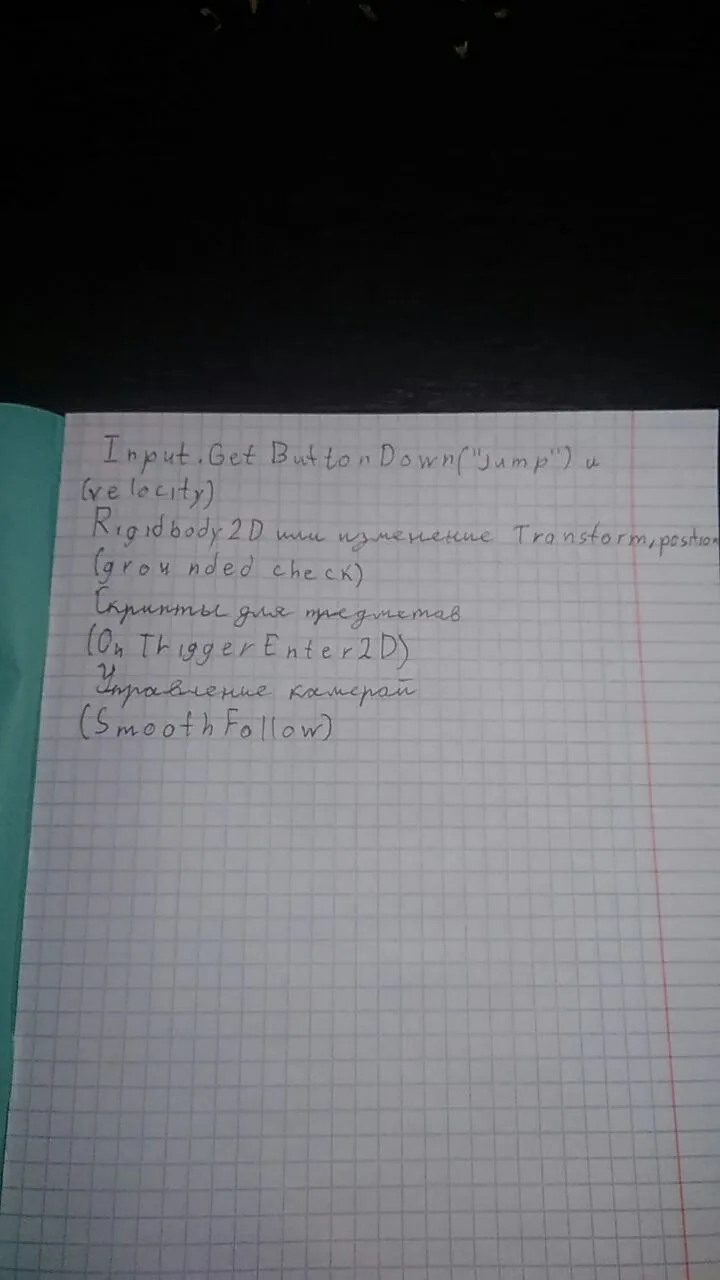 Input.Get ButtonDown("jump") и
(velocity)
Rigidbody2D или изменение Transform,position
(grounded check)
Скрипты для предметав
(On TriggerEnter2D)
Управление камерай
(SmoothFollow)